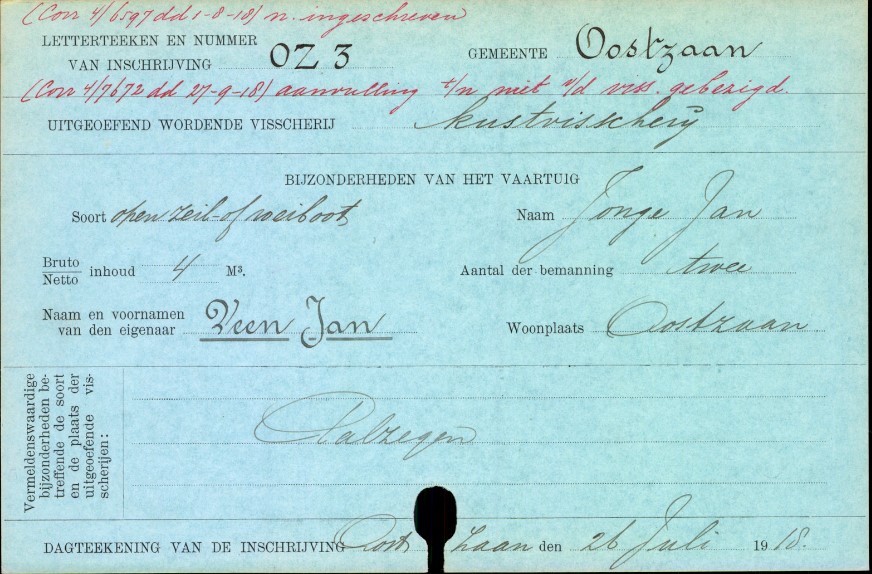 (Corr 4/6597 dd 1-8-18) n. ingeschreven
LETTERTEEKEN EN NUMMER
VAN INSCHRIJVING OZ 3 GEMEENTE Oostzaan
(Corr 4/7672 dd 27-9-18) aanvulling t/n niet v/d viss. gebezigd.
UITGEOEFEND WORDENDE VISSCHERIJ kustvisscherij
BIJZONDERHEDEN VAN HET VAARTUIG
Soort open zeil- of roeiboot Naam Jonge Jan
Bruto
Netto inhoud 4 M³. Aantal der bemanning twee
Naam en voornamen
van den eigenaar Veen Jan Woonplaats Oostzaan
Vermeldenswaardige
bijzonderheden be-
treffende de soort
en de plaats der
uitgeoefende vis-
scherijen:
Aalzegen
DAGTEEKENING VAN DE INSCHRIJVING Oostzaan den 26 Juli 1918.